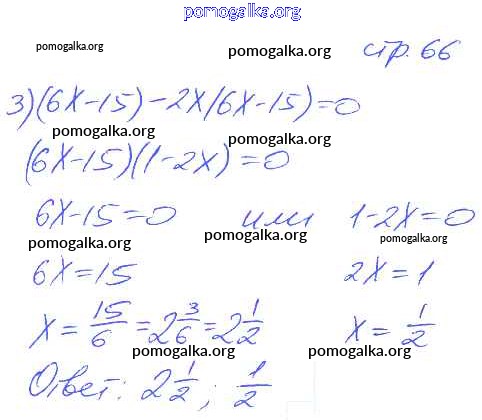 pomogalka.org
pomogalka.org pomogalka.org стр. 66
3) (6x-15)-2x(6x-15)=0
pomogalka.org pomogalka.org
(6x-15)(1-2x)=0
6x-15=0 или 1-2x=0
pomogalka.org pomogalka.org pomogalka.org
6x=15 2x=1
x=15/6=2 3/6=2 1/2 x=1/2
pomogalka.org pomogalka.org
Ответ: 2 1/2; 1/2